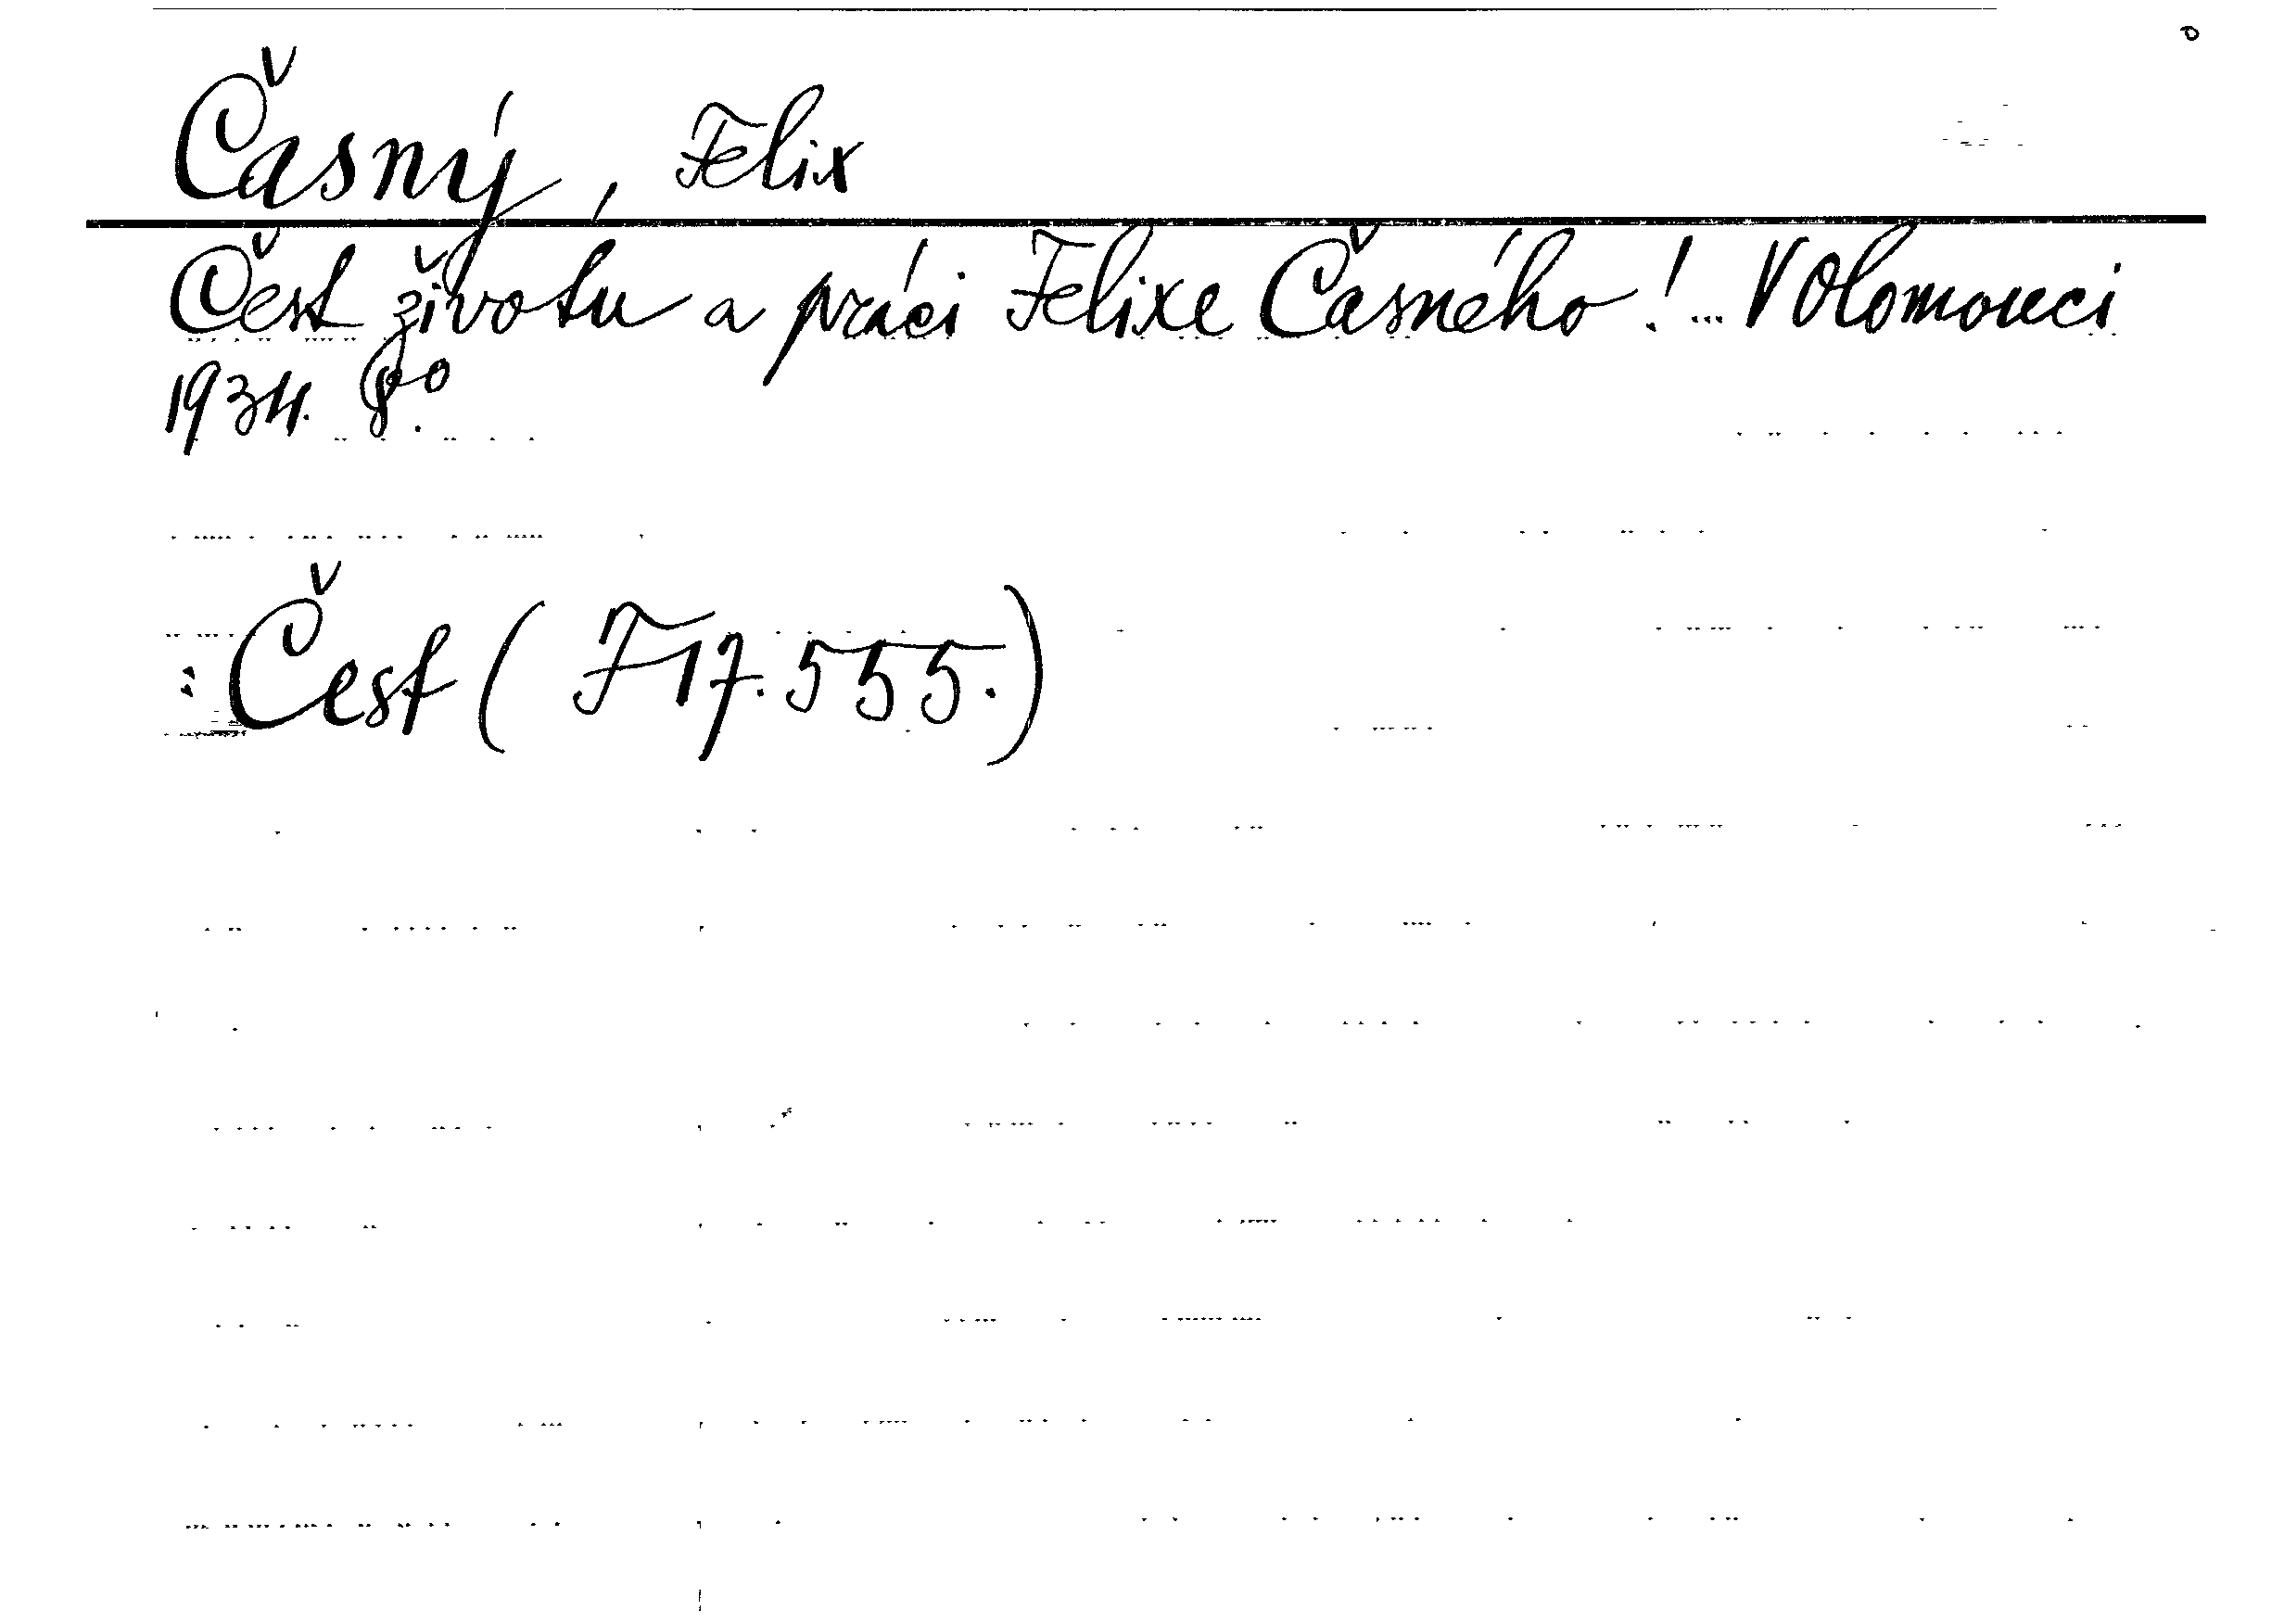 Časný, Felix
Čest životu a práci Felixe Časného! ... V Olomouci
1934. 8°.
: Čest ( F 17.555.)